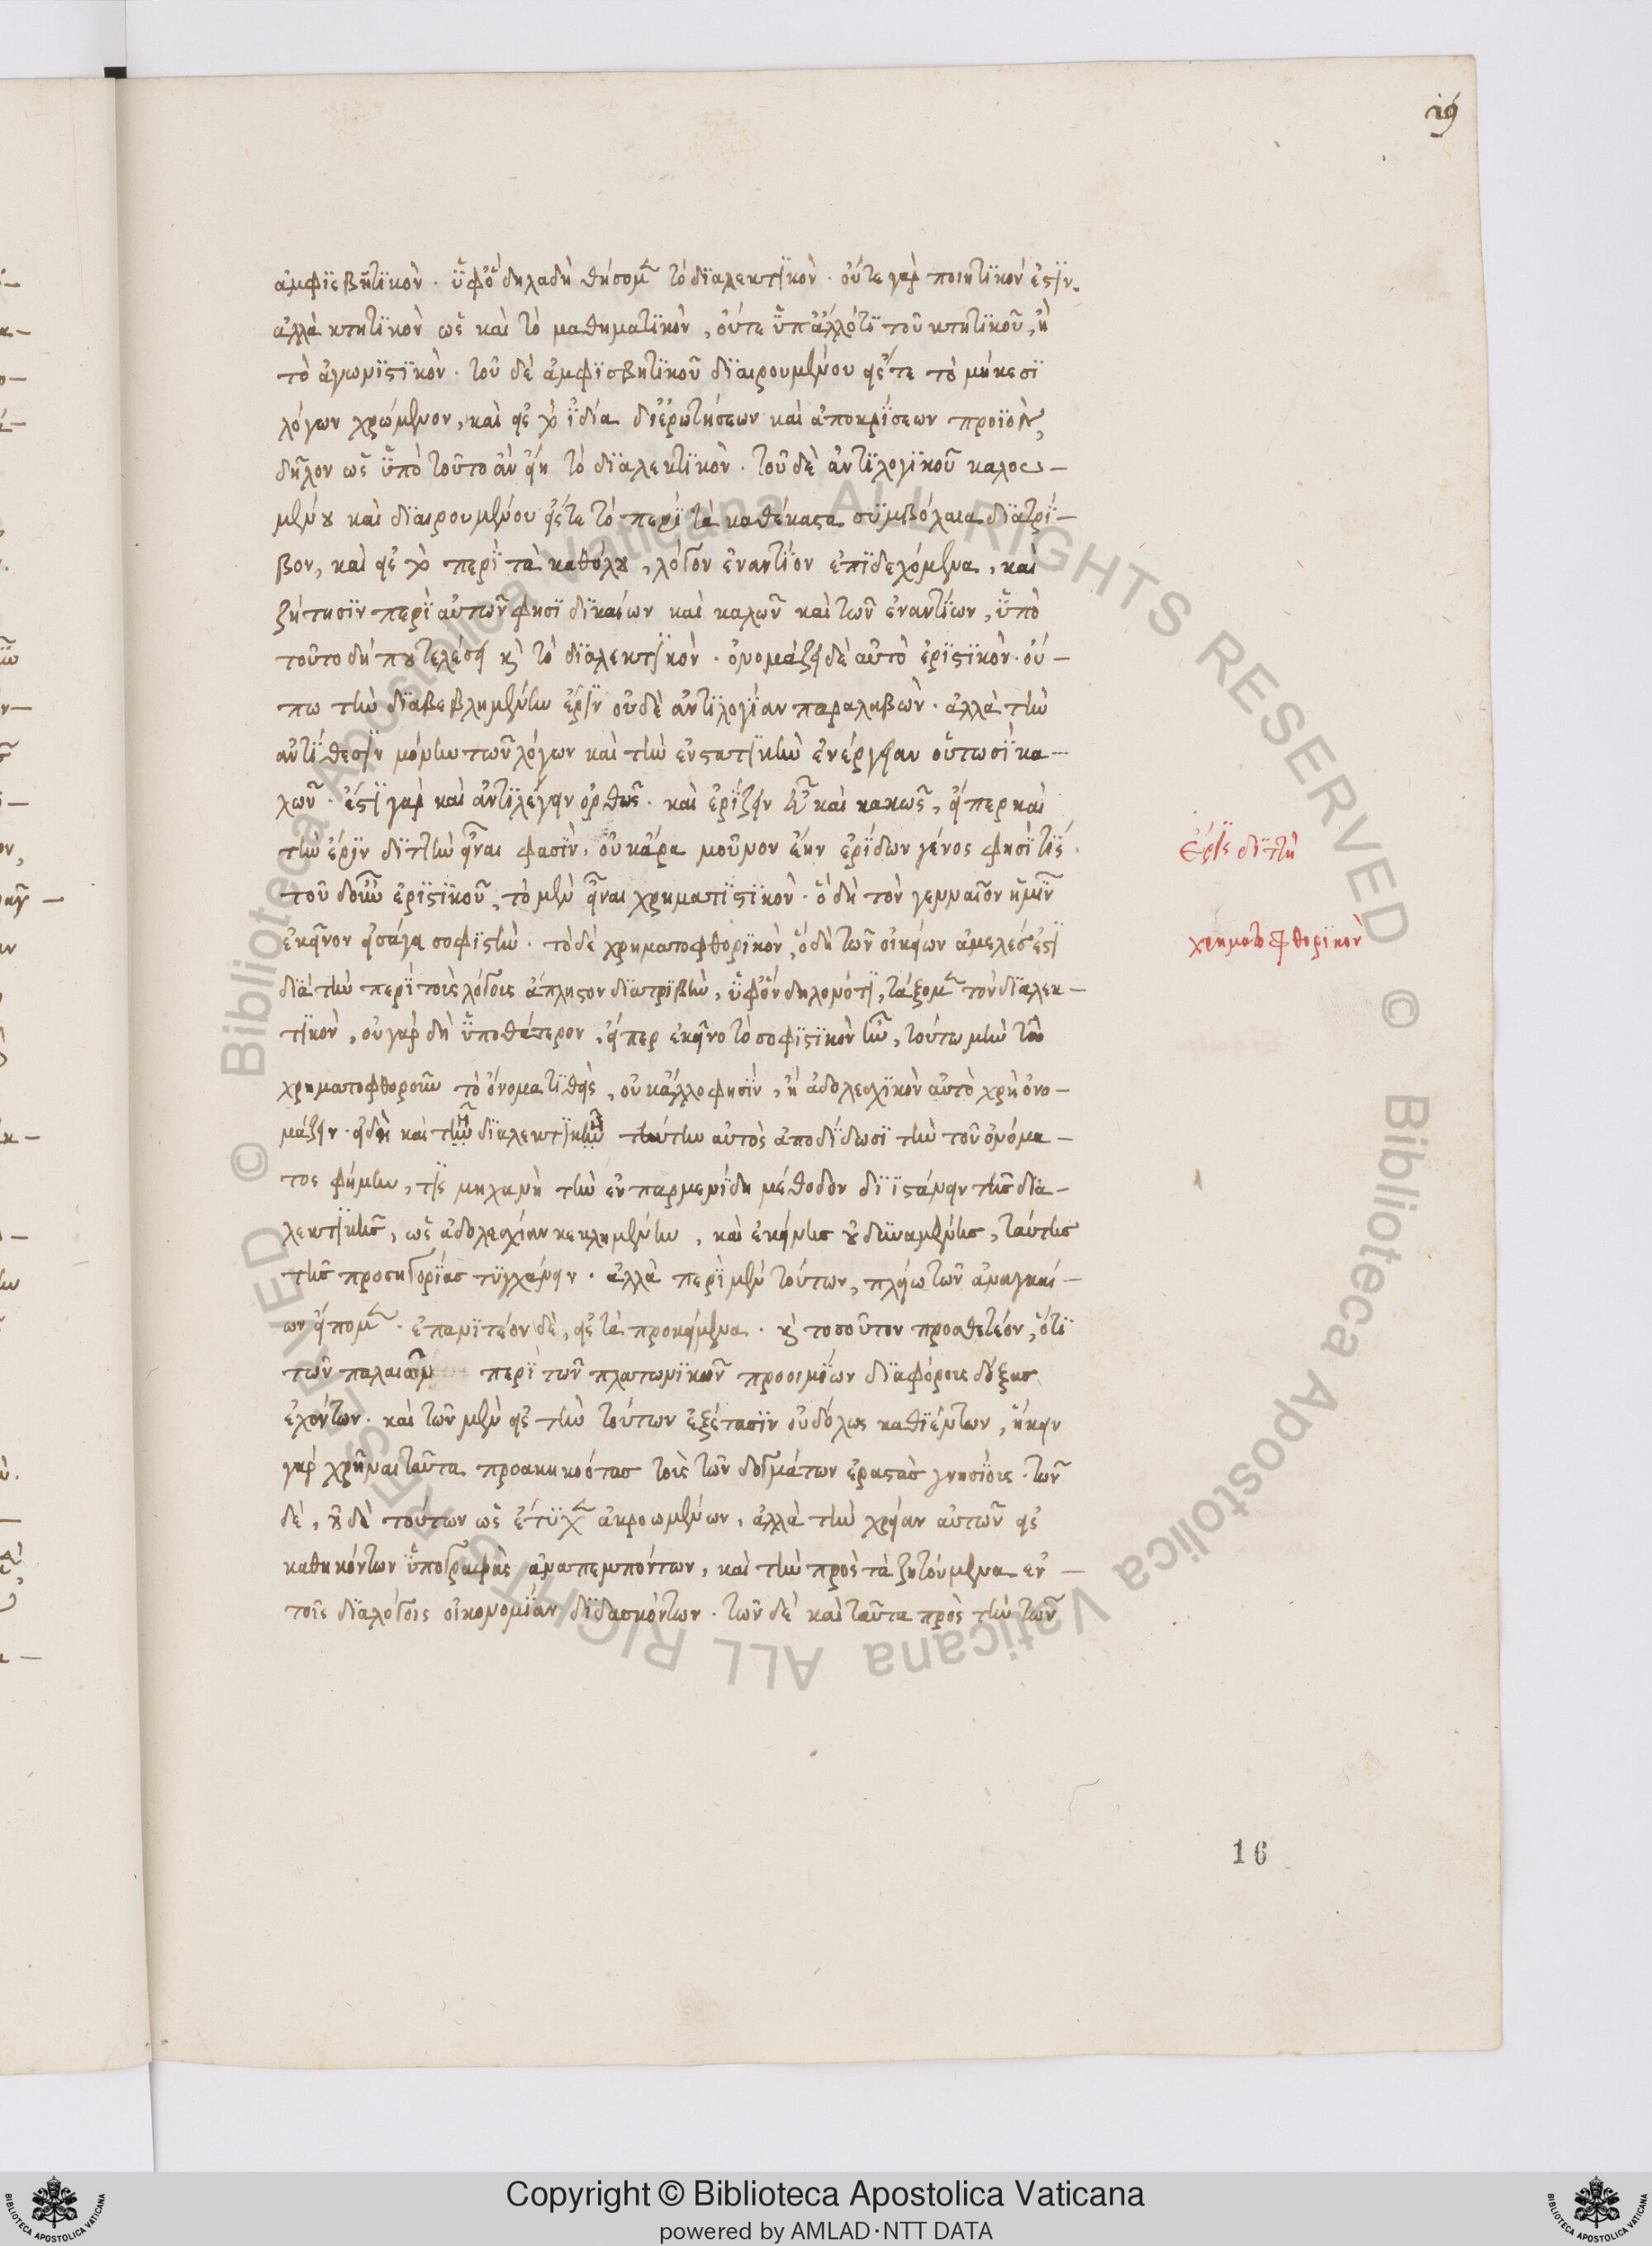 ιϛ
ἀμφισβητϊκὸν · ὑφ' ὃ δηλαδὴ θήσομεν τὸ δϊαλεκτϊκὸν · οὔτε γὰρ ποιητϊκὸν ἐστϊν.
ἀλλὰ κτητϊκὸν ὡς καὶ τὸ μαθηματϊκὸν, οὔτε ὑπ' ἄλλό τϊ τοῦ κτητϊκοῦ, ἢ
τὸ ἀγωνϊστϊκὸν · τοῦ δὲ ἀμφϊσβητϊκοῦ δϊαιρουμένου εἴς τε τὸ μήκεσϊ
λόγων χρώμενον, καὶ εἰς τὸ ἰδία δϊ' ἐρωτήσεων καὶ ἀποκρίσεων προϊὸν,
δῆλον ὡς ὑπὸ τοῦτο ἂν εἴη τὸ δϊαλεκτϊκὸν · τοῦ δὲ ἀντϊλογϊκοῦ καλου –
μένου καὶ δϊαιρουμένου εἴς τε τὸ περὶ τὰ καθέκαστα συμβόλαια δϊατρί –
βον, καὶ εἰς τὸ περὶ τὰ καθόλου, λόγον ἐναντίον ἐπϊδεχόμενα, καὶ
ζήτησϊν περὶ αὐτῶν φησϊ δϊκαίων καὶ καλῶν καὶ τῶν ἐναντίων, ὑπὸ
τοῦτο δήπου τελέσει καὶ τὸ δϊαλεκτϊκὸν · ὀνομάζει δὲ αὐτὸ ἐρϊστϊκὸν · οὔ –
πω τὴν δϊαβεβλημένην ἔρϊν οὐδὲ ἀντϊλογίαν παραλαβὼν · ἀλλὰ τὴν
ἀντίθεσϊν μόνην τῶν λόγων καὶ τὴν ἐνστατϊκὴν ἐνέργειαν οὕτωσϊ κα –
λῶν · ἔστϊ γὰρ καὶ ἀντϊλέγειν ὀρθῶς · καὶ ἐρίζειν εὖ καὶ κακῶς, εἴπερ καὶ
τὴν ἔρϊν δϊττὴν εἶναι φασϊν · οὐκ ἄρα μοῦνον ἔην ἐρίδων γένος φησί τϊς ·
τοῦ δ' οὖν ἐρϊστϊκοῦ, τὸ μὲν εἶναι χρηματϊστϊκὸν · ὃ δὴ τὸν γενναῖον ἡμῖν
ἐκεῖνον εἰσάγει σοφϊστὴν · τὸ δὲ χρηματοφθορϊκὸν, ὃ δὴ τῶν οἰκείων ἀμελές ἐστϊ
δϊὰ τὴν περὶ τοὺς λόγους ἄπληστον δϊατρϊβὴν, ὑφ' ὃν δηλονότϊ, τάξομεν τὸν δϊαλεκ –
τϊκὸν, οὐ γὰρ δὴ ὑπο θάτερον, εἴπερ ἐκεῖνο τὸ σοφϊστϊκὸν ἦν, τούτω μὲν τῶ
χρηματοφθοροῦν τὸ ὄνομα τϊθεὶς, οὐκ ἄλλο φησϊν, ἢ ἀδολεσχϊκὸν αὐτὸ χρὴ ὀνο –
μάζειν · εἰ δὲ καὶ τὴν δϊαλεκτϊκὴν ταύτην αὐτὸς ἀποδίδωσϊ τὴν τοῦ ὀνόμα –
τος φήμην, τίς μηχανὴ τὴν ἐν παρμενίδη μέθοδον δϊϊστάνειν τῆς δϊα –
λεκτϊκῆς, ὡς ἀδολεσχίαν κεκλημένην, καὶ ἐκείνης οὐ δυναμένης, ταύτης
τῆς προσηγορίας τυγχάνειν · ἀλλὰ περὶ μὲν τούτων, πλείω τῶν ἀναγκαί –
ων εἴπομεν · ἐπανϊτέον δὲ, εἰς τὰ προκείμενα · καὶ τοσοῦτον προσθετέον, ὅτϊ
τῶν παλαιῶν περὶ τῶν πλατωνϊκῶν προοιμίων δϊαφόρους δόξας
ἐχόντων · καὶ τῶν μὲν εἰς τὴν τούτων ἐξέτασϊν οὐδ' ὅλως καθϊέντων, ἥκειν
γὰρ χρῆναι ταῦτα προακηκοότας τοὺς τῶν δογμάτων ἐραστὰς γνησίους · τῶν
δὲ, οὐδὲ τούτων ὡς ἔτυχεν ἀκροωμένων, ἀλλὰ τὴν χρείαν αὐτῶν εἰς
καθηκόντων ὑπογραφὰς ἀναπεμπόντων, καὶ τὴν πρὸς τὰ ζητούμενα ἐν –
τοῖς δϊαλόγοις οἰκονομίαν δϊδασκόντων · τῶν δὲ καὶ ταῦτα πρὸς τὴν τῶν
ἔρϊς δϊττὴ
χρηματοφθορϊκὸν
16
© Biblioteca Apostolica Vaticana ALL RIGHTS RESERVED © Biblioteca Apostolica Vaticana ALL RIGHTS RESERVED
Copyright © Biblioteca Apostolica Vaticana
powered by AMLAD·NTT DATA
BIBLIOTECA APOSTOLICA VATICANA
BIBLIOTECA APOSTOLICA VATICANA